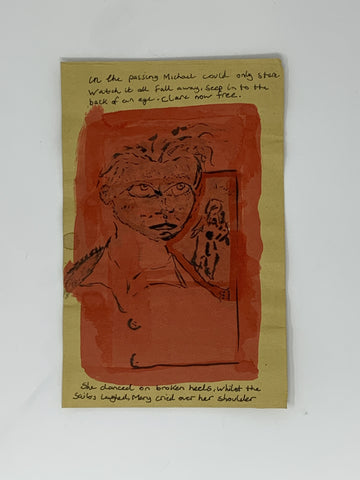 In the passing Michael could only stare
Watch it all fall away. Seep in to the
back of an eye. Clare now free.
She danced on broken heels, whilst the
Sailos laughed, Mary cried over her shoulder